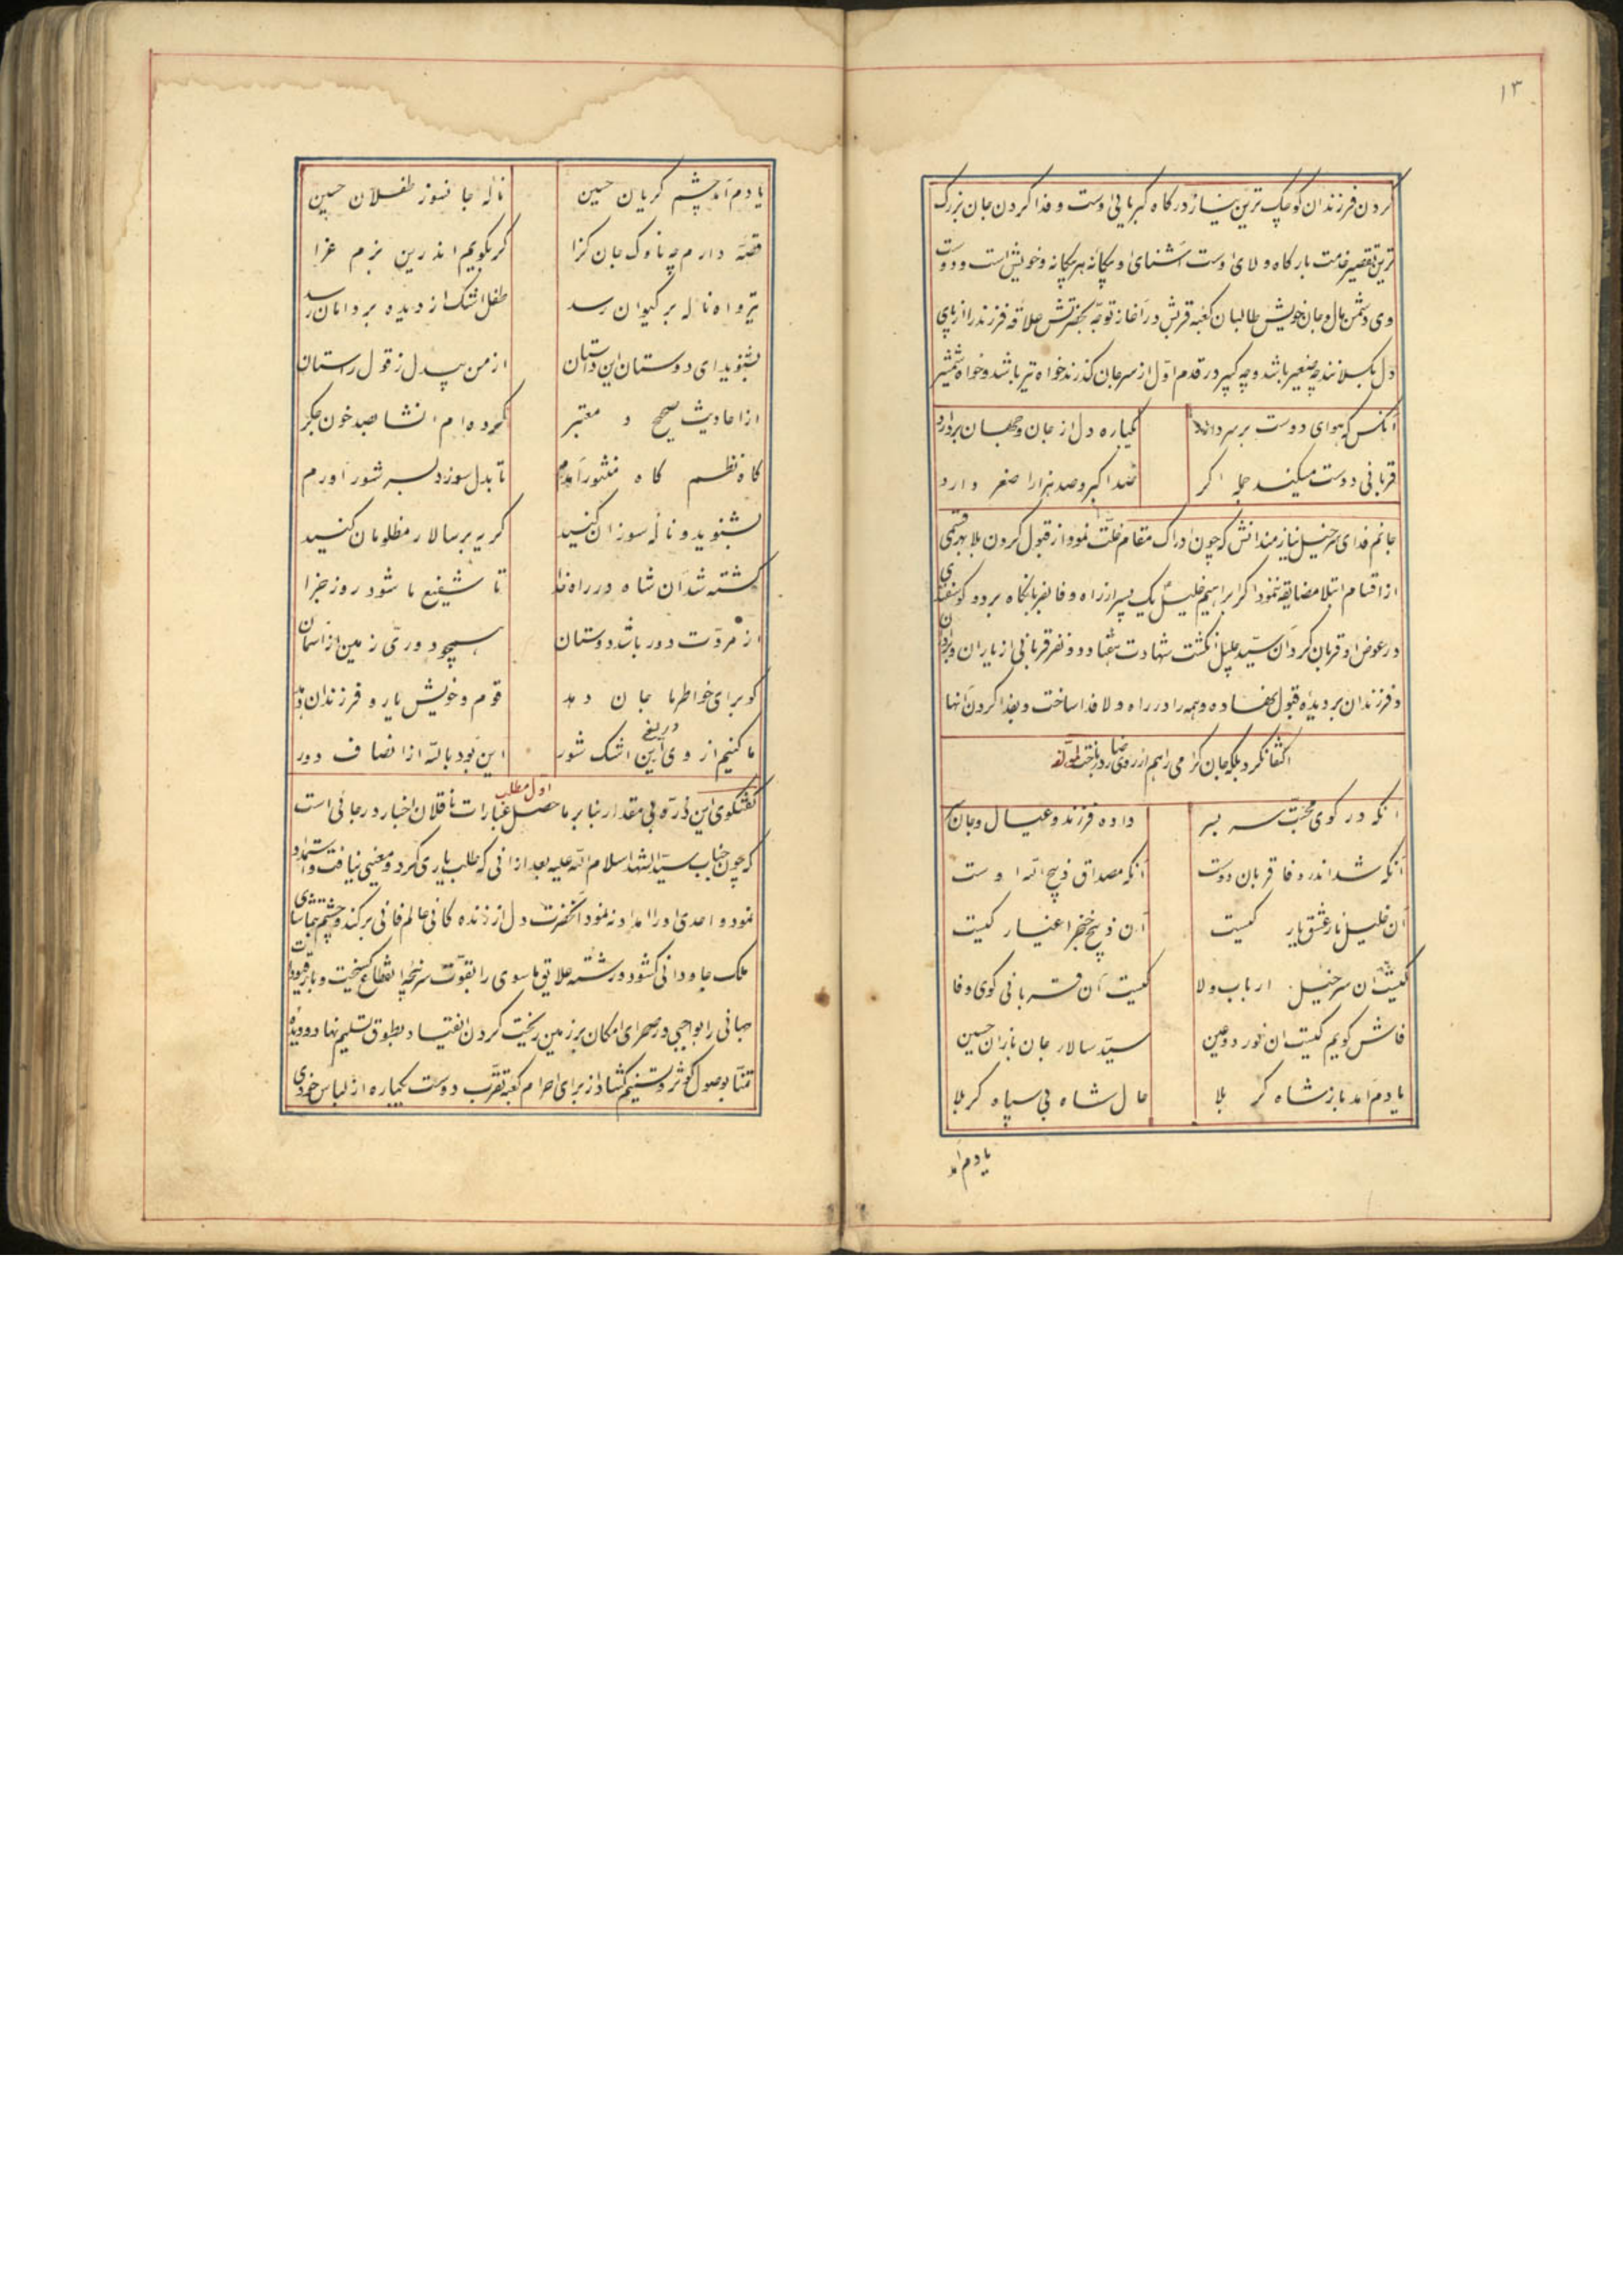 ۱۳
کردن فرزندان کوچک ترین نیاز درکاه کبریائی اوست و فدا کردن جان بزرک
ترین تقصیر خدمت بارکاه ولای اوست آشنای او بیکانه هر بیکانه و خویش است و دوست
وی دشمن مال و جان خویش طالبان کعبه قربش در آغاز توجّه بحضرتش علاقه فرزند را از پای
دل بکسلانند چه صغیر باشد و چه کبیر در قدم اوّل از سر جان کذرند خواه تیر باشد و خواه شمشیر
آنکس که هوای دوست بر سر دارد یکباره دل از جان و جهان بردارد
قربانی دوست میکند جمله اکر صد اکبر و صد هزار اصغر دارد
جانم فدای سرخیل نیازمندانش که چون ادراک مقام خلّت نمود از قبول کردن بلا بهر قسمی
از اقسام ابتلا مضایقه ننمود اکر ابراهیم خلیل یک پسر از راه وفا بقربانکاه برد و کوسفندی
در عوض او قربان کرد آن سیّد جلیل از کشت شهادت هفتاد و دو نفر قربانی از یاران و برادران
و فرزندان بر دیده قبول نهاده و همه را در راه ولا فدا ساخت و بفدا کردن آنها
اکتفا نکرد بلکه جان کرامی را هم از روی رضا در باخت لمؤلفه
آنکه در کوی محبّت سر بسر داده فرزند و عیال و جان
آنکه شد اندر وفا قربان دوست آنکه مصداق ذبیح الله اوست
آن خلیل نار عشق یار کیست آن ذبیح خنجر اغیار کیست
کیست آن سرخیل ارباب ولا کیست آن قربانی کوی وفا
فاش کویم کیست آن نور دو عین سیّد سالار جان بازان حسین
یادم آمد باز شاه کربلا حال شاه بی سپاه کربلا
یادم آمد
یادم آمد چشم کریان حسین ناله جانسوز طفلان حسین
قصّه دارم چه ناوک جان کزا کر بکویم اندرین بزم عزا
تیر و آه ناله بر کیوان رسد طفل اشک از دیده بر دامان رسد
بشنوید ای دوستان این داستان از من بیدل ز قول راستان
از احادیث صحیح و معتبر کرده ام انشا بصد خون جکر
کاه نظم کاه منثور آورم تا بدل سوز و بسر شور آورم
بشنوید و ناله سوزان کنید کریه بر سالار مظلومان کنید
کشته شد آن شاه در راه خدا تا شفیع ما شود روز جزا
از مروّت دور باشد دوستان همچو دوری زمین از آسمان
کو برای خاطر ما جان دهد قوم و خویش یار و فرزندان دهد
ما کنیم از وی دریغ این اشک شور این بود بالله از انصاف دور
اوّل مطلب
کفتکوی این ذرّه بی مقدار بنا بر ما حصل عبارات ناقلان اخبار در جائی است
که چون جناب سیّد الشهدا سلام الله علیه بعد از آنی که طلب یاری کرد و معینی نیافت و استمداد
نمود و احدی او را امداد ننمود آنحضرت دل از زنده کانی عالم فانی بر کند و چشم بتماشای
ملک جاودانی کشود و رشته علایق ماسوی را بقوّت سر پنجه انقطاع کسیخت و بار قیودات
جهانی را بواجبی در صحرای امکان بر زمین ریخت کردن انقیاد بطوق تسلیم نهاد و دیده
تمنّا بوصول کوثر و تسنیم کشاد از برای احرام کعبه تقرّب دوست یکباره از لباس خودی